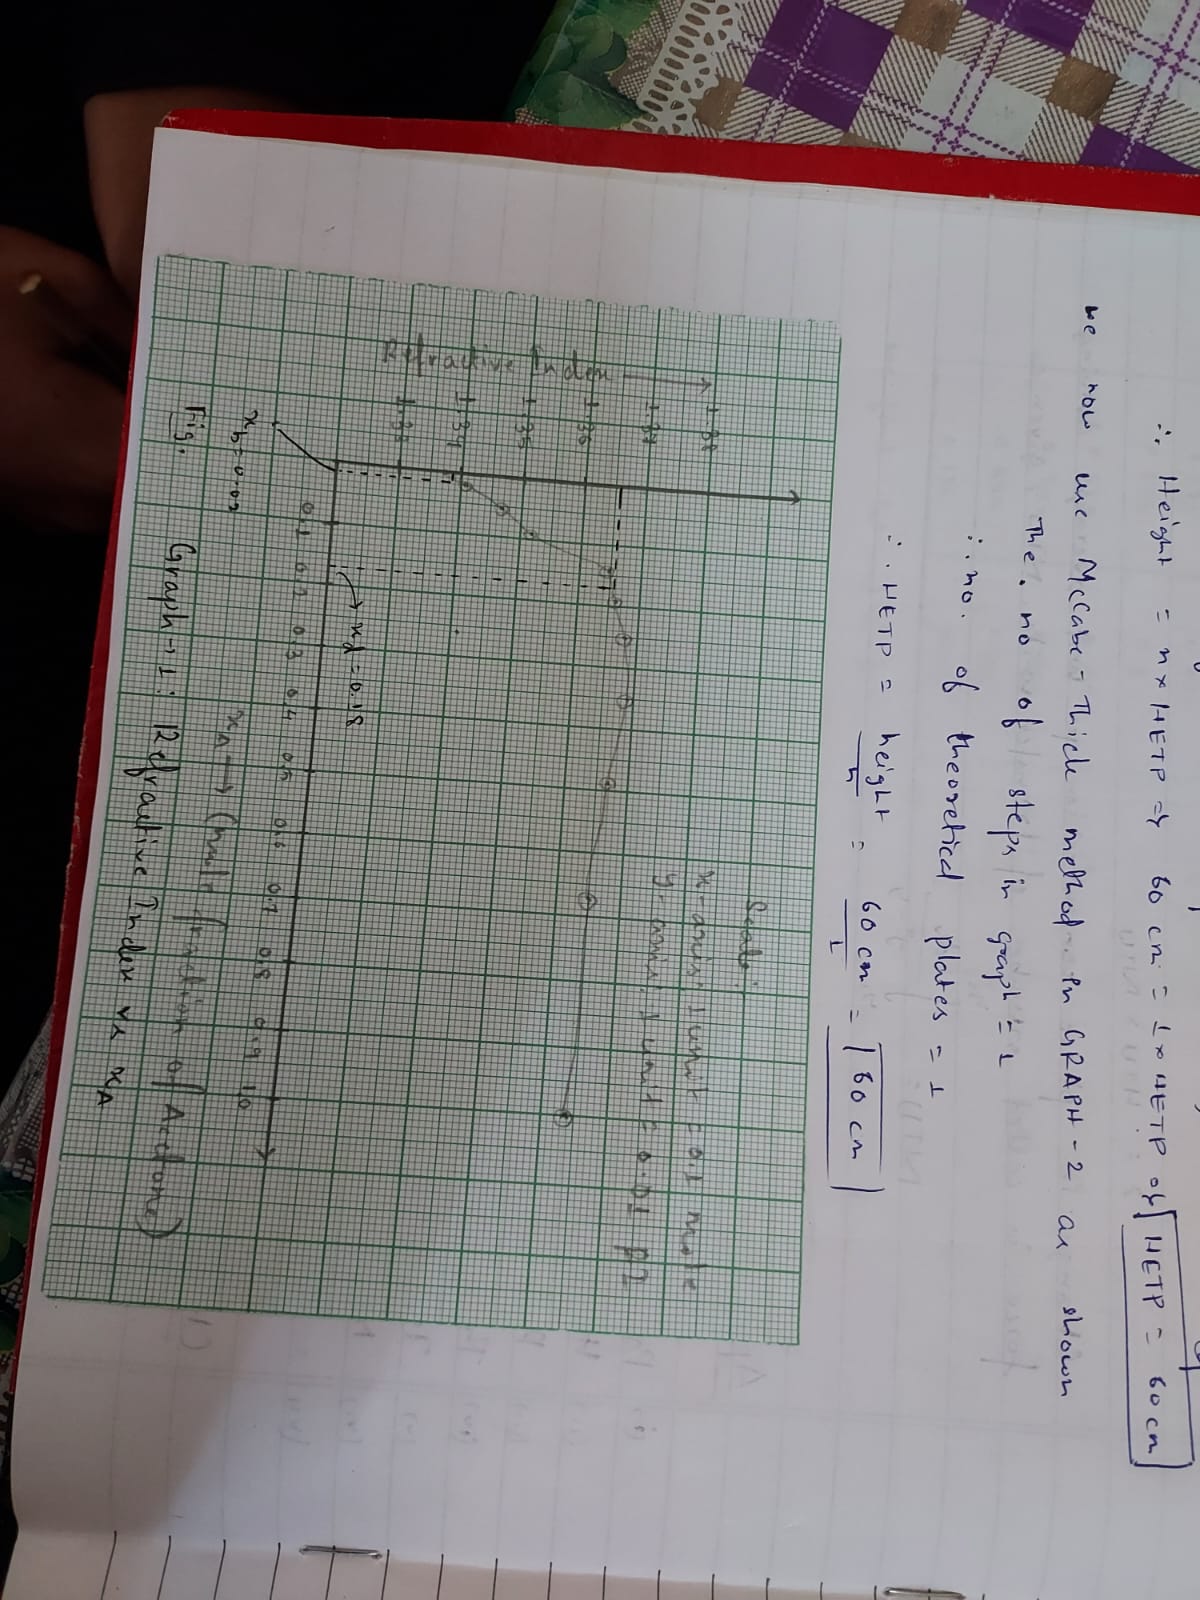 ∴ Height = n × HETP ⇒ 60 cm = 1 × HETP or HETP = 60 cm
we now use McCabe - Thiele method. In GRAPH - 2 as shown
The. no of steps in graph = 1
∴ no. of theoretical plates = 1
∴ HETP = height/n = 60 cm/1 = 60 cm
Scale:
x-axis: 1 unit = 0.1 mole
y-axis: 1 unit = 0.01 RI
Refractive Index →
1.38
1.37
1.36
1.35
1.34
1.33
xd = 0.18
0.1 0.2 0.3 0.4 0.5 0.6 0.7 0.8 0.9 1.0
xb = 0.02
xA → (mole fraction of Acetone)
Fig. Graph → 1: Refractive Index vs xA